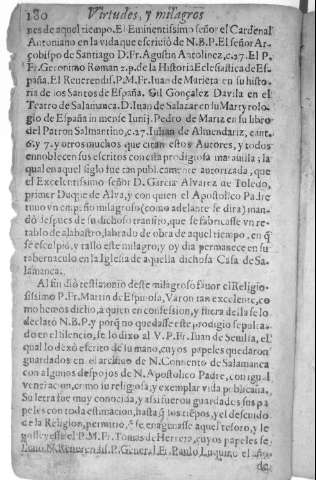 180 Virtudes, y milagros
nes de aquel tiempo. El Eminentissimo señor el Cardenal
Antoniano en la vida que escriviò de N.B.P. El señor Ar-
çobispo de Santiago D. Fr. Agustin Antolinez, c.27. El P.
Fr. Geronimo Roman 2.p. de la Historia Eclesiastica de Es-
paña. El Reverendis. P.M. Fr. Iuan de Marieta en su histo-
ria de los Santos de España. Gil Gonçalez Davila en el
Teatro de Salamanca. D. Iuan de Salazar en su Martyrolo-
gio de España in mense Iunij. Pedro de Mariz en su libro
del Patron Salmantino, c.27. Iulian de Almendariz, cant.
6.y 7. y otros muchos que citan estos Autores, y todos
ennoblecen sus escritos con esta prodigiosa maravilla; la
qual en aquel siglo fue tan publicamente autorizada, que
el Excelentissimo señor D. Garcia Alvarez de Toledo,
primer Duque de Alva, y con quien el Apostolico Padre
tuvo vn empeño milagroso (como adelante se dira) man-
dò despues de su dichoso transito, que se fabricasse vn re-
tablo de alabastro, labrado de obra de aquel tiempo, en q̃
se esculpiò, y tallò este milagro, y oy dia permanece en su
tabernaculo en la Iglesia de aquella dichosa Casa de Sa-
lamanca.
Al fin diò testimonio deste milagroso favor el Religio-
sissimo P. Fr. Martin de Espinosa, Varon tan excelente, co
mo hemos dicho, a quien en confession, y fuera della se lo
declarò N.B.P. y porq̃ no quedasse este prodigio sepulta-
do en el silencio, se lo dixo al V.P. Fr. Iuan de Sevilla, el
qual lo dexò escrito de su mano, cuyos papeles quedaron
guardados en el archivo de N. Convento de Salamanca
con algunos despojos de N. Apostolico Padre, con igual
veneracion, como su religiosa, y exemplar vida publicava.
Su letra fue muy conocida, y assi fueron guardados sus pa
peles con toda estimacion, hasta q̃ los tiẽpos, y el descuido
de la Religion, permitiò, q̃ se enagenasse aquel tesoro, y le
gozasse el P.M. Fr. Tomas de Herrera, cuyos papeles se
N. Reverendis. P. General Fr. Paulo Luquino el año
de